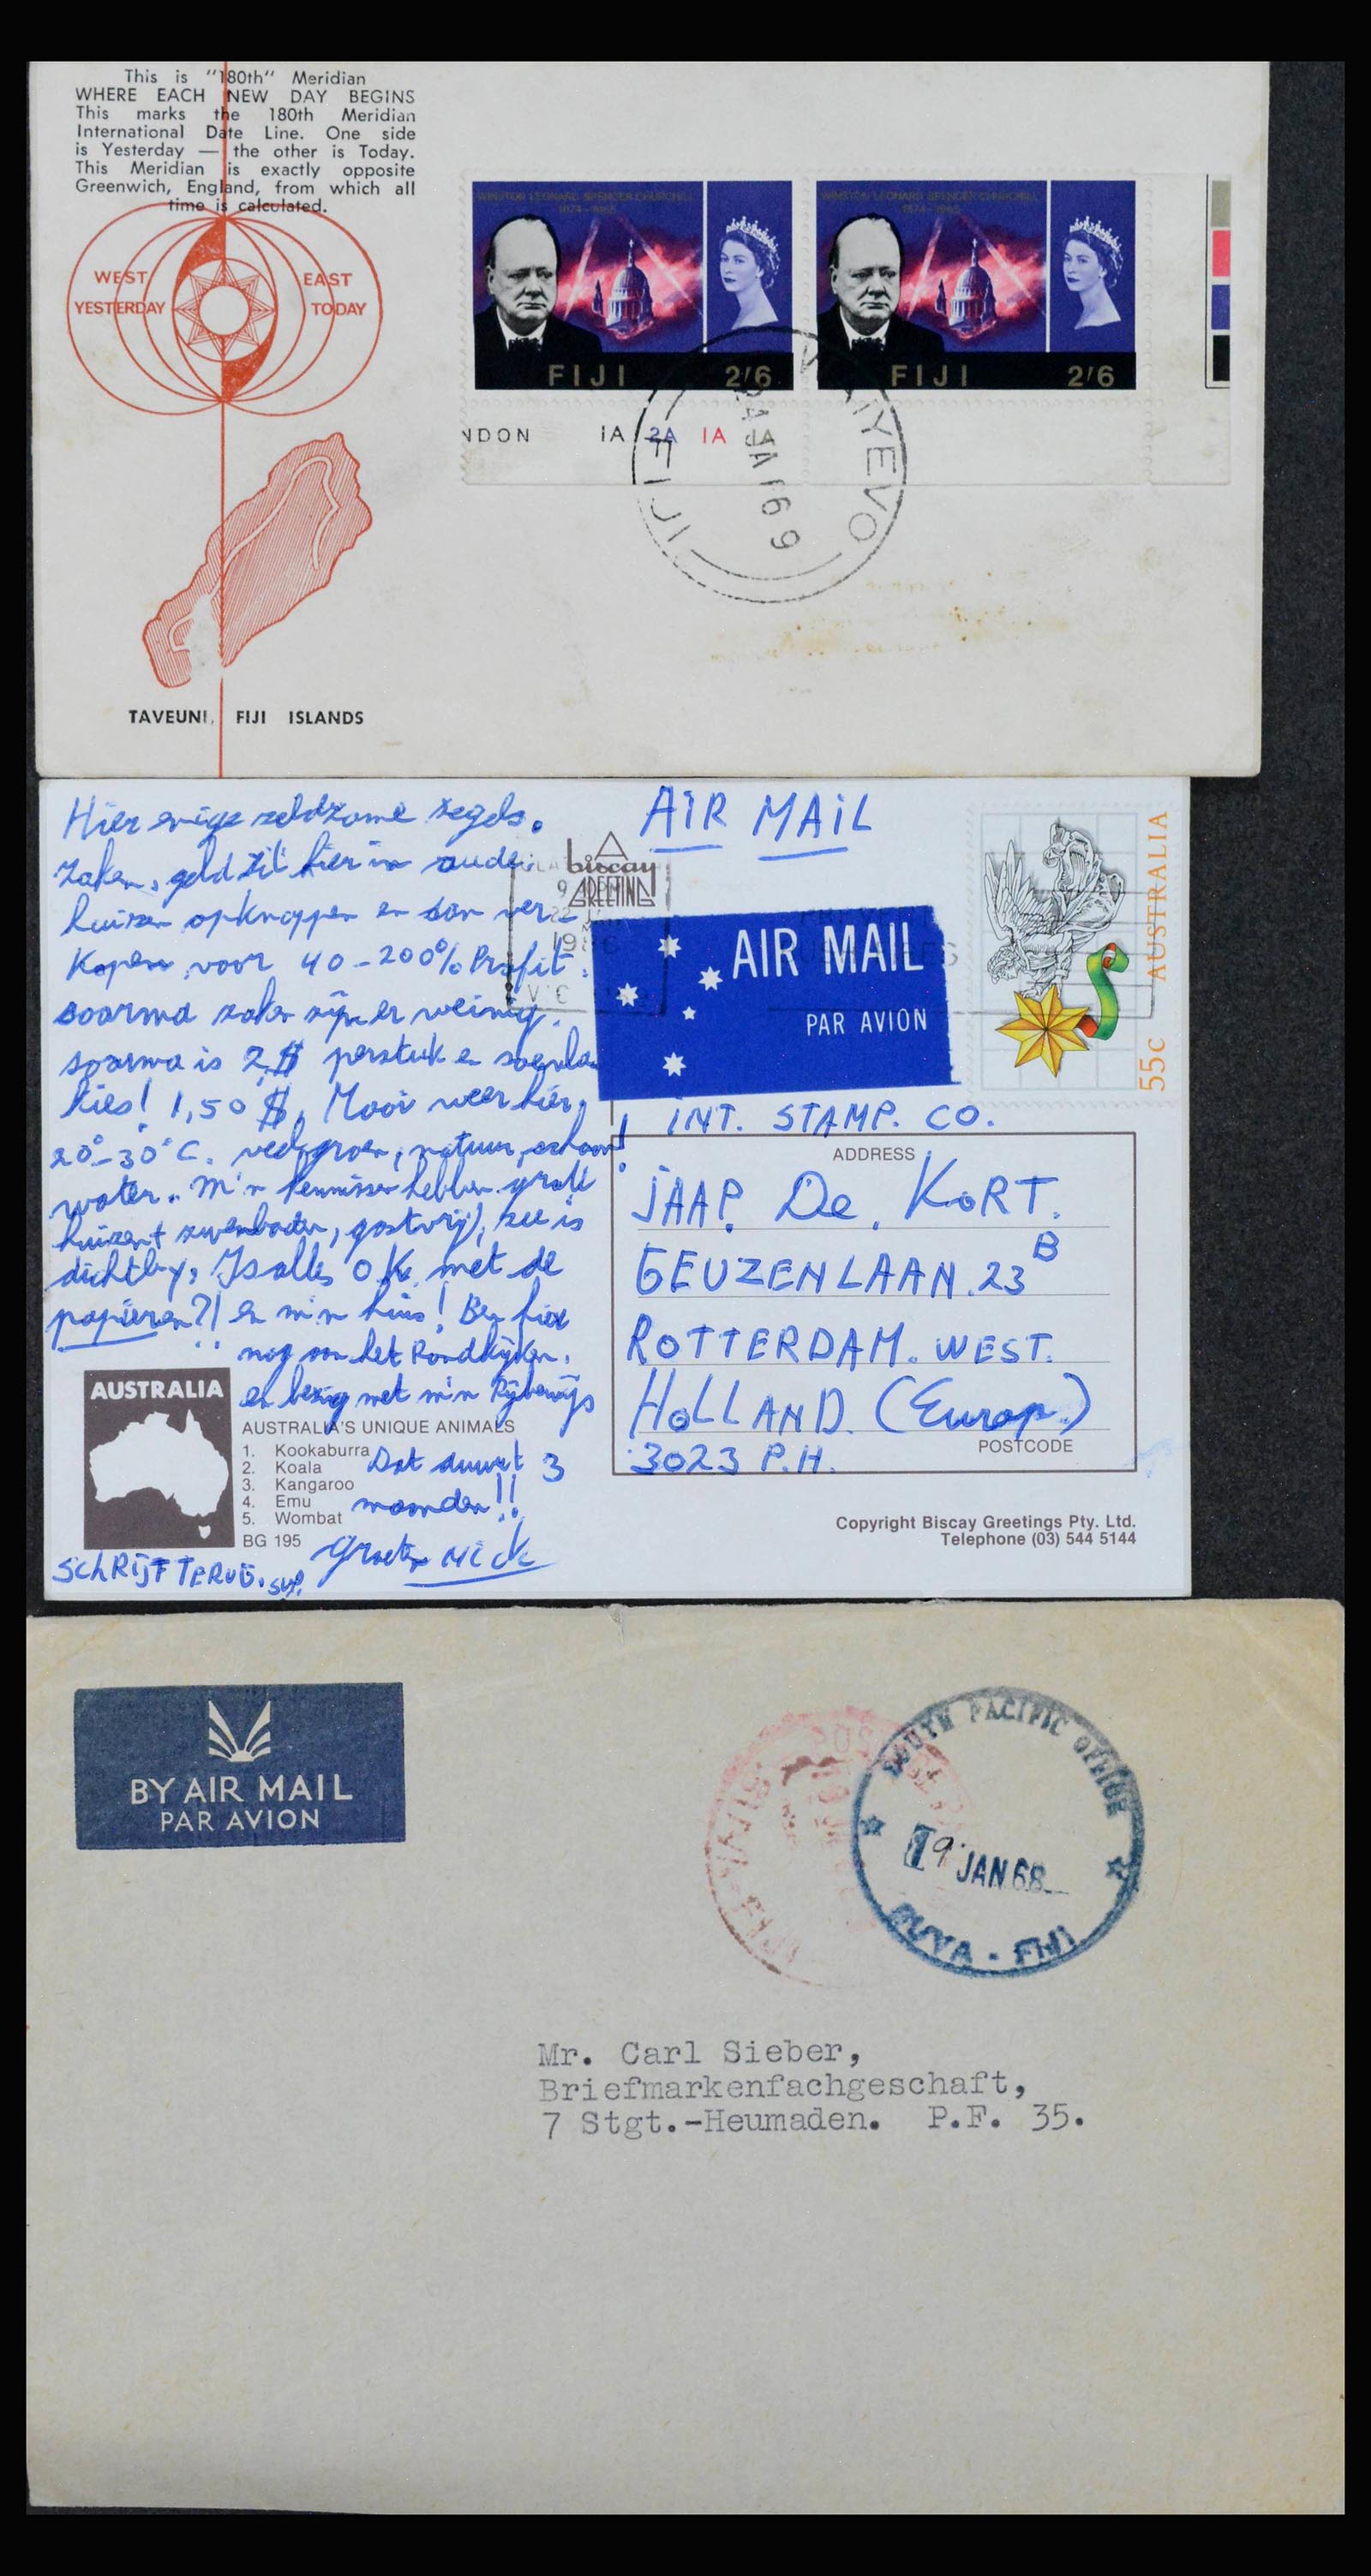 This is "180th" Meridian
WHERE EACH NEW DAY BEGINS
This marks the 180th Meridian
International Date Line. One side
is Yesterday — the other is Today.
This Meridian is exactly opposite
Greenwich, England, from which all
time is calculated.
WEST EAST
YESTERDAY TODAY
TAVEUNI, FIJI ISLANDS
WINSTON LEONARD SPENCER CHURCHILL
1874-1965
FIJI 2/6
WINSTON LEONARD SPENCER CHURCHILL
1874-1965
FIJI 2/6
NDON 1A 2A 1A 1A
FIJI
Hier enige zeldzame zegels.
Zaken, geld zit hier in oude
huizen opknappen en dan ver
kopen voor 40-200% Profit.
soarma zaken zijn er weinig.
soarma is 2 $ perstuk e
kies! 1,50 $. Mooi weer hier,
20°-30°C. veel groen, natuur, schoon!
water. M'n kennissen hebben grote
huizen + zwembaden, gastvrij, zee is
dichtby, Is alles OK met de
papieren?! en m'n huis! Ben hier
nog aan het Rondkijken.
en bezig met m'n Rijbewijs
Dat duurt 3
maanden!!
Groeten NICK
SCHRIJF TERUG. svp.
AUSTRALIA
AUSTRALIA'S UNIQUE ANIMALS
1. Kookaburra
2. Koala
3. Kangaroo
4. Emu
5. Wombat
BG 195
biscay
GREETING
AIR MAIL
AIR MAIL
PAR AVION
55c AUSTRALIA
INT. STAMP. CO.
ADDRESS
JAAP. De. KORT.
GEUZENLAAN. 23 B
ROTTERDAM. WEST.
HOLLAND. (Europ.)
POSTCODE
3023 P.H.
Copyright Biscay Greetings Pty. Ltd.
Telephone (03) 544 5144
BY AIR MAIL
PAR AVION
SOUTH PACIFIC OFFICE
19 JAN 68
SUVA - FIJI
Mr. Carl Sieber,
Briefmarkenfachgeschaft,
7 Stgt.-Heumaden. P.F. 35.